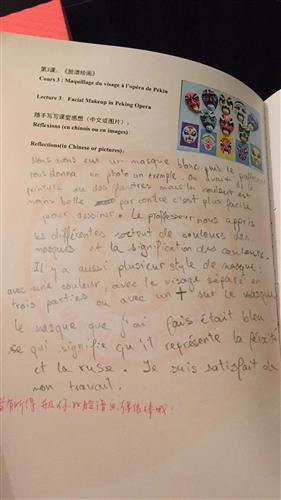 第3课：《脸谱绘画》
Cours 3 : Maquillage du visage à l'opéra de Pékin
Lecture 3: Facial Makeup in Peking Opera
随手写写课堂感想（中文或图片）:
Réflexions (en chinois ou en images) :
Reflections(in Chinese or pictures):
Nous avons eut un masque blanc puis le professeur
nous donna en photo un exemple. On avait de la
peinture ou des feutres mais la couleur est
moin belle par contre c'est plus facile
pour dessiner. Le professeur nous appris
les différentes sortent de couleurs des
masques et la signification des couleurs.
Il y a aussi plusieur style de masque:
avec une couleur, avec le visage séparé en
trois parties ou avec un + sur le masque
le masque que j'ai fais était bleu
se qui signifie qu'il représente la férocité
et la ruse. Je suis satisfait de
mon travail.
有所得,且你的脸谱画得很棒哦!